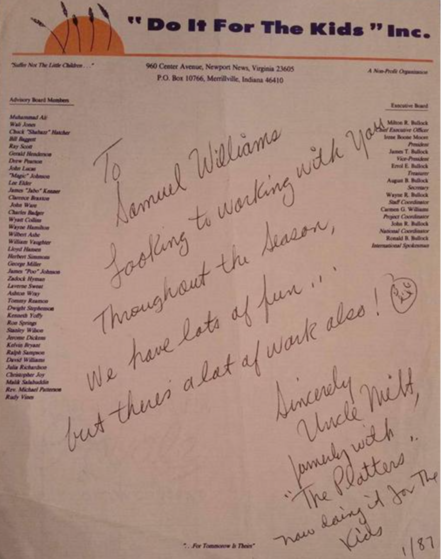 "Do It For The Kids" Inc.
"Suffer Not The Little Children . . ."
960 Center Avenue, Newport News, Virginia 23605
P.O. Box 10766, Merrillville, Indiana 46410
A Non-Profit Organization
Advisory Board Members
Muhammad Ali
Walt Jones
Chuck "Shabazz" Hatcher
Bill Baggett
Ray Scott
Gerald Henderson
Drew Pearson
John Lucas
"Magic" Johnson
Lee Elder
James "Jabo" Kenner
Clarence Braxton
John Ware
Charles Badger
Wyatt Collins
Wayne Hamilton
Wilbert Ashe
William Vaughter
Lloyd Hansen
Herbert Simmons
George Miller
James "Poo" Johnson
Zadock Hymer
Laverne Sweat
Ashton Wray
Tommy Reamon
Dwight Stephenson
Kenneth Toffy
Ron Springs
Stanley Wilson
Jerome Dickens
Kelvin Bryant
Ralph Sampson
David Williams
Julia Richardson
Christopher Joy
Malik Salahuddin
Rev. Michael Patterson
Rudy Vines
Executive Board
Milton R. Bullock
Chief Executive Officer
Irene Boone Moore
President
James T. Bullock
Vice-President
Errol E. Bullock
Treasurer
August B. Bullock
Secretary
Wayne R. Bullock
Staff Coordinator
Carmen G. Williams
Project Coordinator
John R. Bullock
National Coordinator
Ronald B. Bullock
International Spokesman
To
Samuel Williams
Looking to working with You
Throughout the Season,
We have lots of fun...
but there's a lot of work also!
Sincerely
Uncle Milt,
formerly with
"The Platters"
now doing it for The
Kids
1/87
"... For Tommorow Is Theirs"